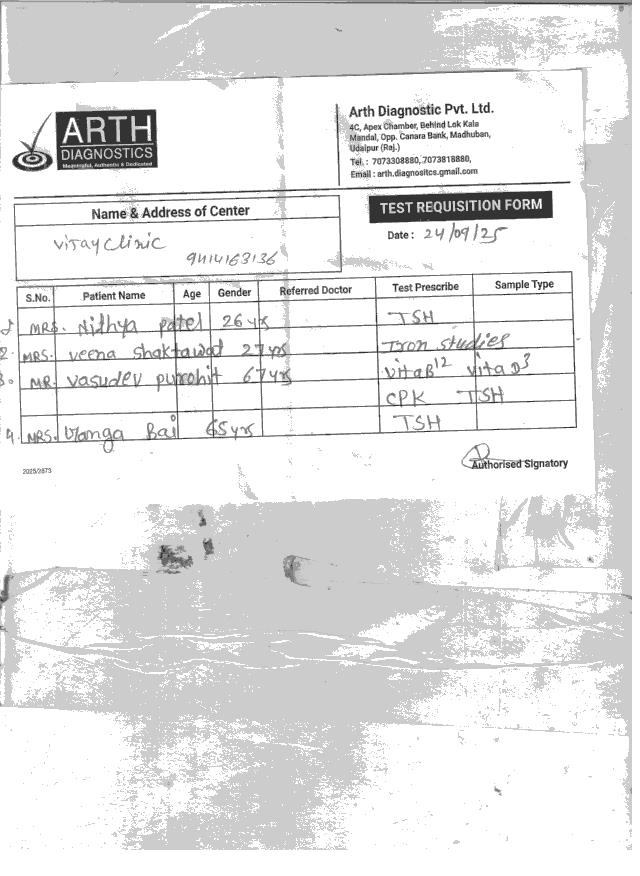 ARTH
DIAGNOSTICS
Meaningful, Authentic & Dedicated
Arth Diagnostic Pvt. Ltd.
4C, Apex Chamber, Behind Lok Kala
Mandal, Opp. Canara Bank, Madhuban,
Udaipur (Raj.)
Tel. : 7073308880, 7073818880,
Email : arth.diagnositcs.gmail.com
Name & Address of Center
TEST REQUISITION FORM
Date : 24/09/25
Vijay Clinic
9414163136
S.No. Patient Name Age Gender Referred Doctor Test Prescribe Sample Type
1. MRS. Nithya patel 26 yrs TSH
2. MRS. veena shaktawat 27 yrs Iron studies
3. MR. vasudev purohit 67 yrs Vita B12 vita D3
CPK TSH
4. MRS. Bai 65 yrs TSH
Authorised Signatory
2025/2873